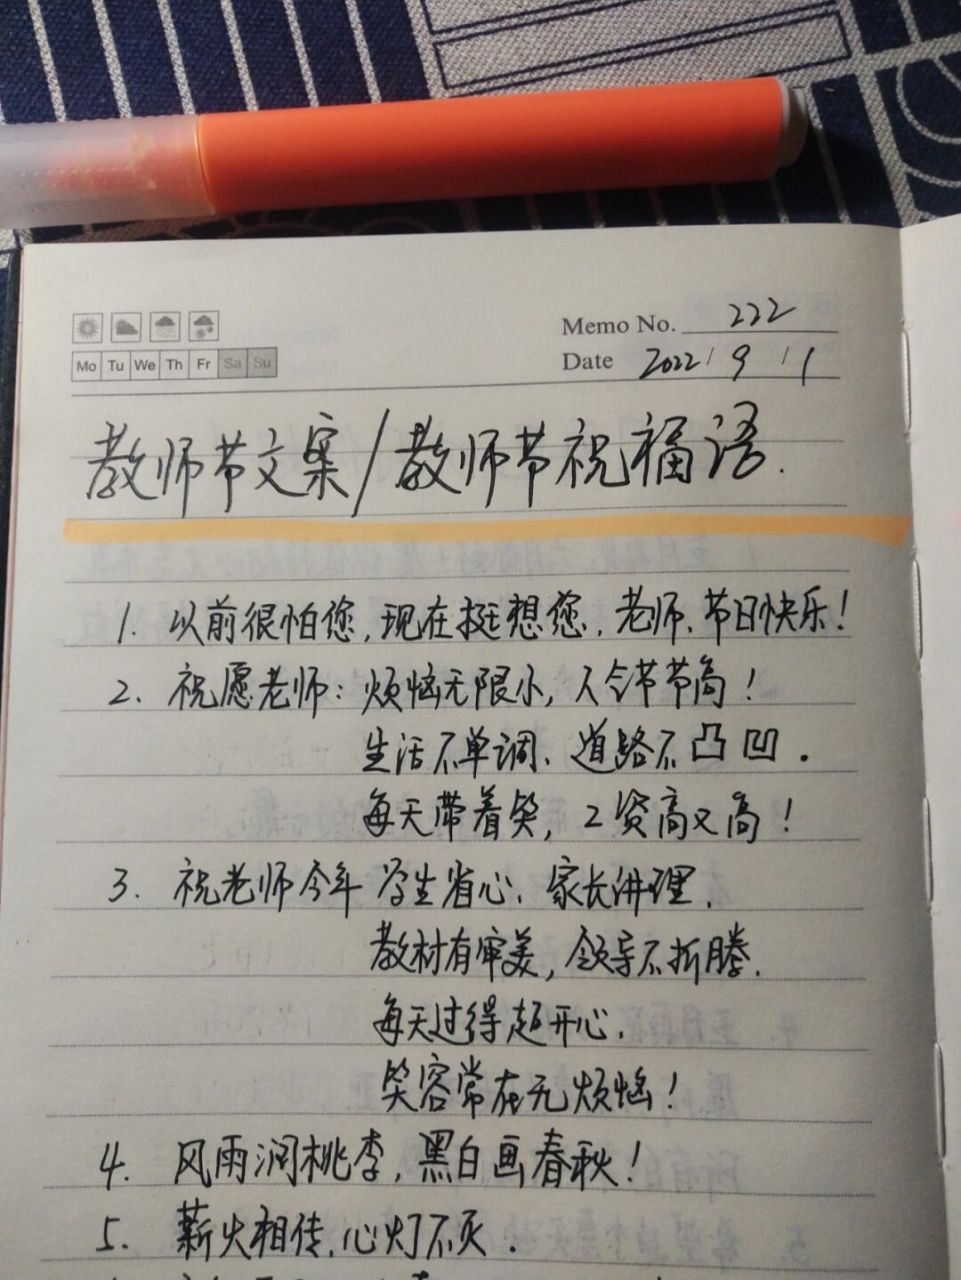 Memo No. 222
Mo Tu We Th Fr Sa Su
Date 2022/9/1
教师节文案/教师节祝福语.
1. 以前很怕您,现在挺想您.老师、节日快乐!
2. 祝愿老师:烦恼无限小,人令节节高!
生活不单调、道路不凸凹.
每天带着笑,工资高又高!
3. 祝老师今年 学生省心、家长讲理.
教材有审美,领导不折腾.
每天过得超开心.
笑容常在无烦恼!
4. 风雨润桃李,黑白画春秋!
5. 薪火相传,心灯不灭.